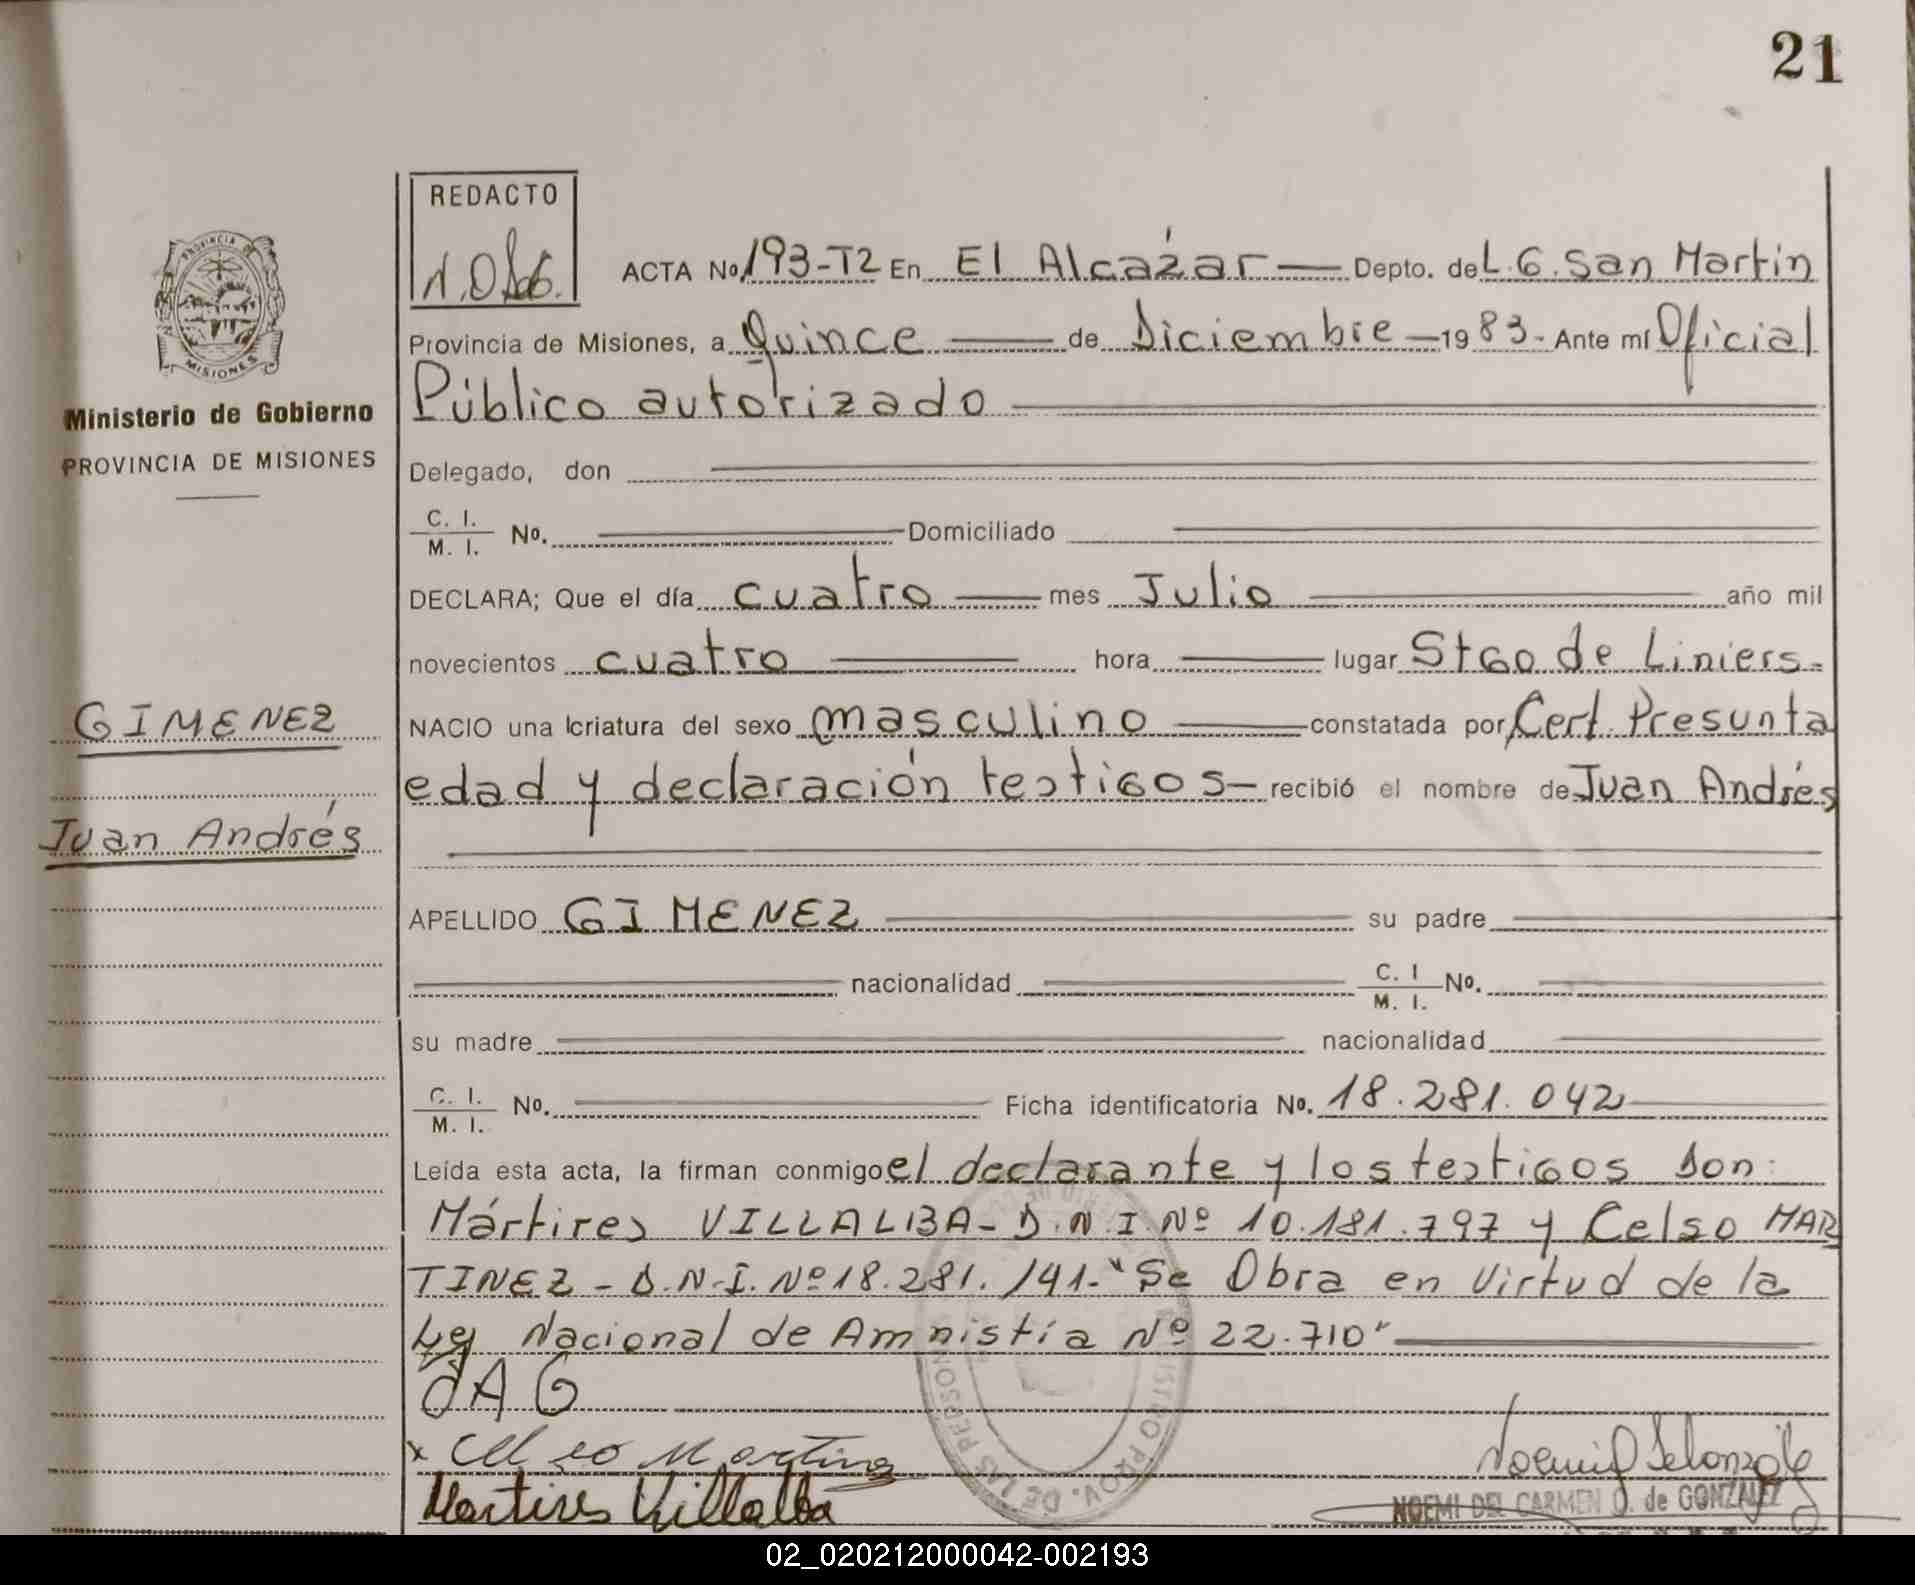 21
REDACTO
ACTA No. 193-T2 En El Alcázar — Depto. de L. G. San Martín
Provincia de Misiones, a Quince — de Diciembre — 1983.- Ante mí Oficial
Público autorizado
Delegado, don
C. I. / M. I. No. Domiciliado
DECLARA; Que el día cuatro — mes Julio — año mil
novecientos cuatro — hora — lugar Stgo de Liniers.-
NACIO una criatura del sexo masculino — constatada por Cert. Presunta
edad y declaración testigos — recibió el nombre de Juan Andrés
APELLIDO GIMENEZ — su padre
nacionalidad C. I / M. I. No.
su madre nacionalidad
C. I. / M. I. No. Ficha identificatoria No. 18.281.042
Leída esta acta, la firman conmigo el declarante y los testigos son:
Mártires VILLALBA - D.N.I Nº 10.181.797 y Celso MAR
TINEZ - D.N.I. Nº 18.281.141.- "Se Obra en Virtud de la
Ley Nacional de Amnistía Nº 22.710"
JAG
x Celso Martinez
Martires Villalba
NOEMI DEL CARMEN O. de GONZALEZ
PROVINCIA DE
MISIONES
Ministerio de Gobierno
PROVINCIA DE MISIONES
GIMENEZ
Juan Andrés
REGISTRO PROV. DE LAS PERSONAS
02_020212000042-002193